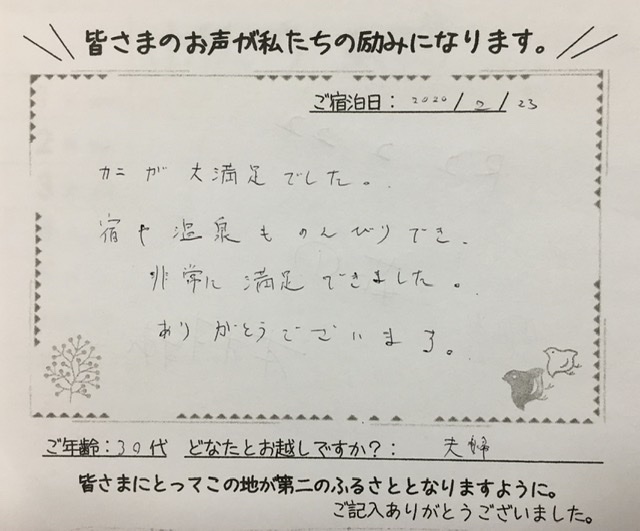 皆さまのお声が私たちの励みになります。
ご宿泊日：2020/2/23
カニが大満足でした。
宿や温泉ものんびりでき、
非常に満足できました。
ありがとうございます。
ご年齢：30代 どなたとお越しですか？： 夫婦
皆さまにとってこの地が第二のふるさととなりますように。
ご記入ありがとうございました。